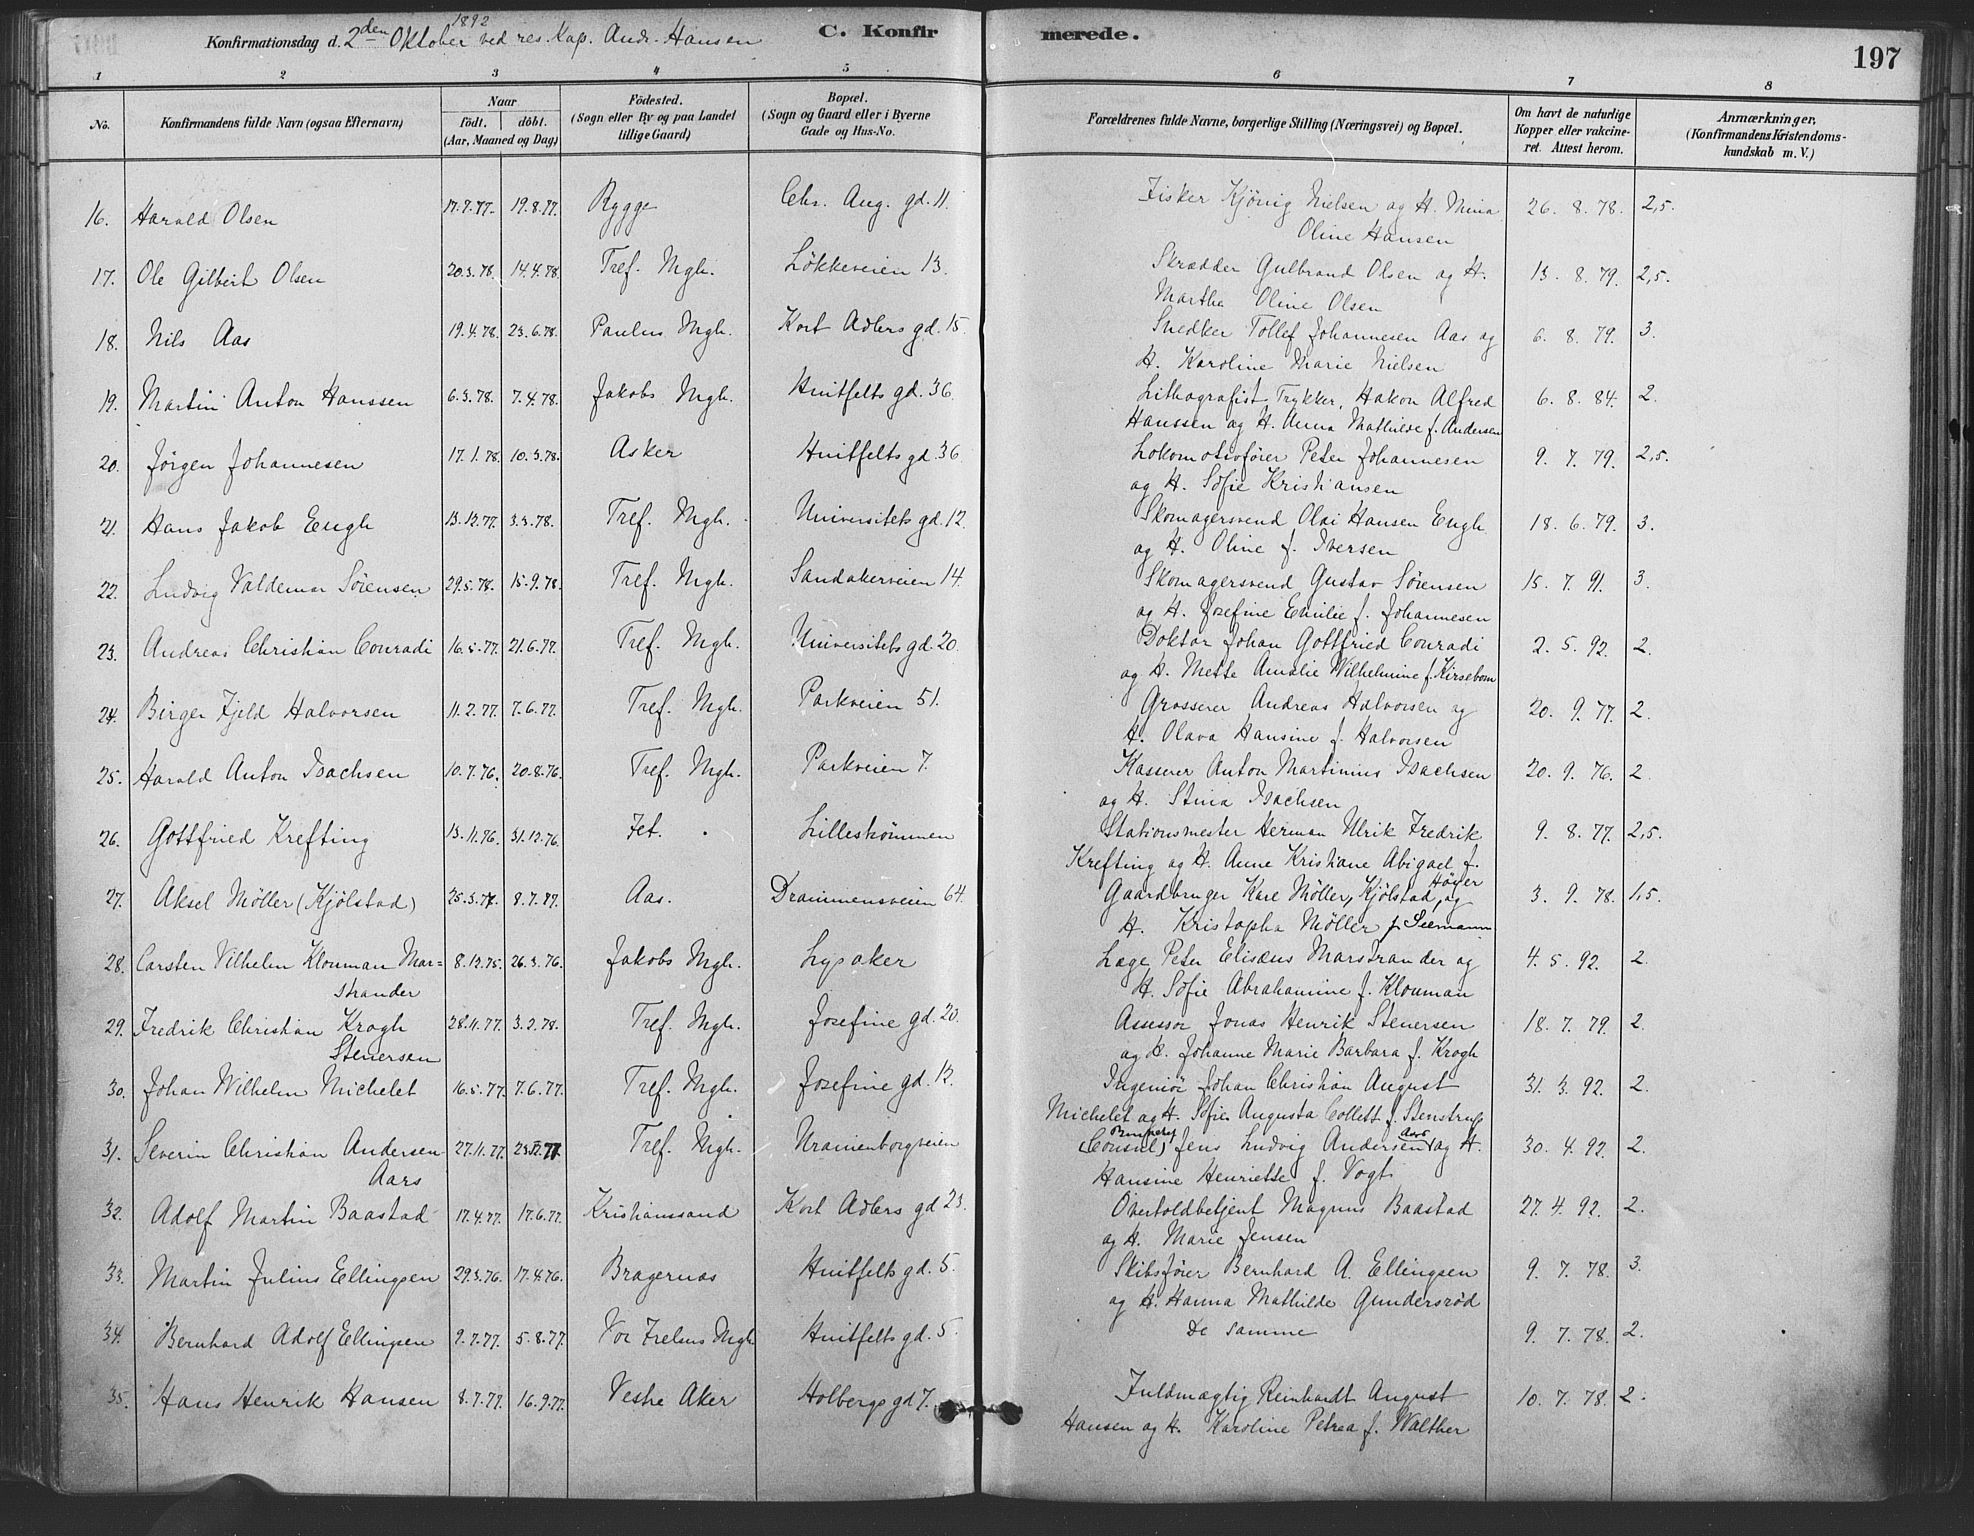 Konfirmationsdag d. 2den Oktober 1892 ved res. Kap. Andr. Hansen C. Konfirmerede. 197
1 2 3 4 5 6 7 8
No. Konfirmandens fulde Navn (ogsaa Efternavn) Naar födt. döbt. (Aar, Maaned og Dag) Födested. (Sogn eller By og paa Landet tillige Gaard) Bopæl. (Sogn og Gaard eller i Byerne Gade og Hus-No. Forældrenes fulde Navne, borgerlige Stilling (Næringsvei) og Bopæl. Om havt de naturlige Kopper eller vakcineret. Attest herom. Anmærkninger, (Konfirmandens Kristendomskundskab m. V.)
16. Harald Olsen 17.7.77. 19.8.77. Rygge Chr. Aug. gd. 11. Fisker Kjönig Nielsen og H. Mina 26. 8. 78. 2,5.
Oline Hansen
17. Ole Gilbert Olsen 20.3.78. 14.4.78. Tref. Mgh. Løkkeveien 13. Skrædder Gulbrand Olsen og H. 13. 8. 79. 2,5.
Marthe Oline Olsen
18. Nils Aas 19.4.78. 23.6.78. Paulus Mgh. Kort Adlers gd. 15. Snedker Tollef Johannesen Aas og 6. 8. 79. 3.
H. Karoline Marie Nielsen
19. Martin Anton Hanssen 6.3.78. 7.4.78. Jakobs Mgh. Huitfelts gd. 36. Lithografist Trykker, Hakon Alfred 6. 8. 84. 2.
Hanssen og H. Anna Mathilde f. Andersen
20. Jörgen Johannesen 17.1.78. 10.3.78. Asker Huitfelts gd. 36. Lokomotivfører Peter Johannesen 9. 7. 79. 2,5.
og H. Sofie Kristiansen
21. Hans Jakob Engh 13.12.77. 3.3.78. Tref. Mgh. Universitets gd. 12. Skomagersvend Olai Hansen Engh 18. 6. 79. 3.
og H. Oline f. Iversen
22. Ludvig Valdemar Sörensen 29.5.78. 15.9.78. Tref. Mgh. Sandakerveien 14. Skomagersvend Gustav Sörensen 15. 7. 91. 3.
og H. Josefine Emilie f. Johannesen
23. Andreas Christian Conradi 16.5.77. 21.6.77. Tref. Mgh. Universitets gd. 20. Doktor Johan Gottfried Conradi 2. 5. 92. 2.
og H. Mette Amalie Wilhelmine f. Kirsebom
24. Birger Fjeld Halvorsen 11.2.77. 7.6.77. Tref. Mgh. Parkveien 51. Grosserer Andreas Halvorsen og 20. 9. 77. 2.
H. Olava Hansine f. Halvorsen
25. Harald Anton Isachsen 10.7.76. 20.8.76. Tref. Mgh. Parkveien 7. Kasserer Anton Martinius Isachsen 20. 9. 76. 2.
og H. Stina Isachsen
26. Gottfried Krefting 13.11.76. 31.12.76. Fet. Lilleströmmen Stationsmester Herman Ulrik Fredrik 9. 8. 77. 2,5.
Krefting og H. Anne Kristiane Abigael f.
Höyer
27. Aksel Möller (Kjölstad) 25.3.77. 8.7.77. Aas. Drammensveien 64. Gaardbruger Karl Möller, Kjölstad, og 3. 9. 78. 1,5.
H. Kristopha Möller f. Seemann
28. Carsten Vilhelm Klouman Mar= 8.12.75. 26.3.76. Jakobs Mgh. Lysaker Læge Peter Elisæus Marstrander og 4. 5. 92. 2.
strander H. Sofie Abrahamine f. Klouman
29. Fredrik Christian Krogh 28.11.77. 3.2.78. Tref. Mgh. Josefine gd. 20. Assessor Jonas Henrik Stenersen 18. 7. 79. 2.
Stenersen og H. Johanne Marie Barbara f. Krogh
30. Johan Wilhelm Michelet 16.5.77. 7.6.77. Tref. Mgh. Josefine gd. 12. Ingeniör Johan Christian August 31. 3. 92. 2.
Michelet og H. Sofie Augusta Collett f. Stenstrup
31. Severin Christian Andersen 27.11.77. Tref. Mgh. Uranienborgveien (Consul) Jens Ludvig Andersen Aars og H. 30. 4. 92. 2.
Aars Hansine Henriette f. Vogt
32. Adolf Martin Baastad 17.4.77. 17.6.77. Kristianssand Kort Adlers gd 23. Overtoldbetjent Magnus Baastad 27. 4. 92. 2.
og H. Marie Jensen
33. Martin Julius Ellingsen 29.3.76. 17.4.76. Bragernæs Huitfelts gd. 5. Skibsfører Bernhard A. Ellingsen 9. 7. 78. 3.
og H. Hanna Mathilde Gundersröd
34. Bernhard Adolf Ellingsen 9.7.77. 5.8.77. Vor Frelsers Mgh Huitfelts gd. 5. De samme 9. 7. 78. 2.
35. Hans Henrik Hansen 8.7.77. 16.9.77. Vestre Aker Holbergs gd 7. Fuldmægtig Reinhardt August 10. 7. 78. 2.
Hansen og H. Karoline Petrea f. Walther